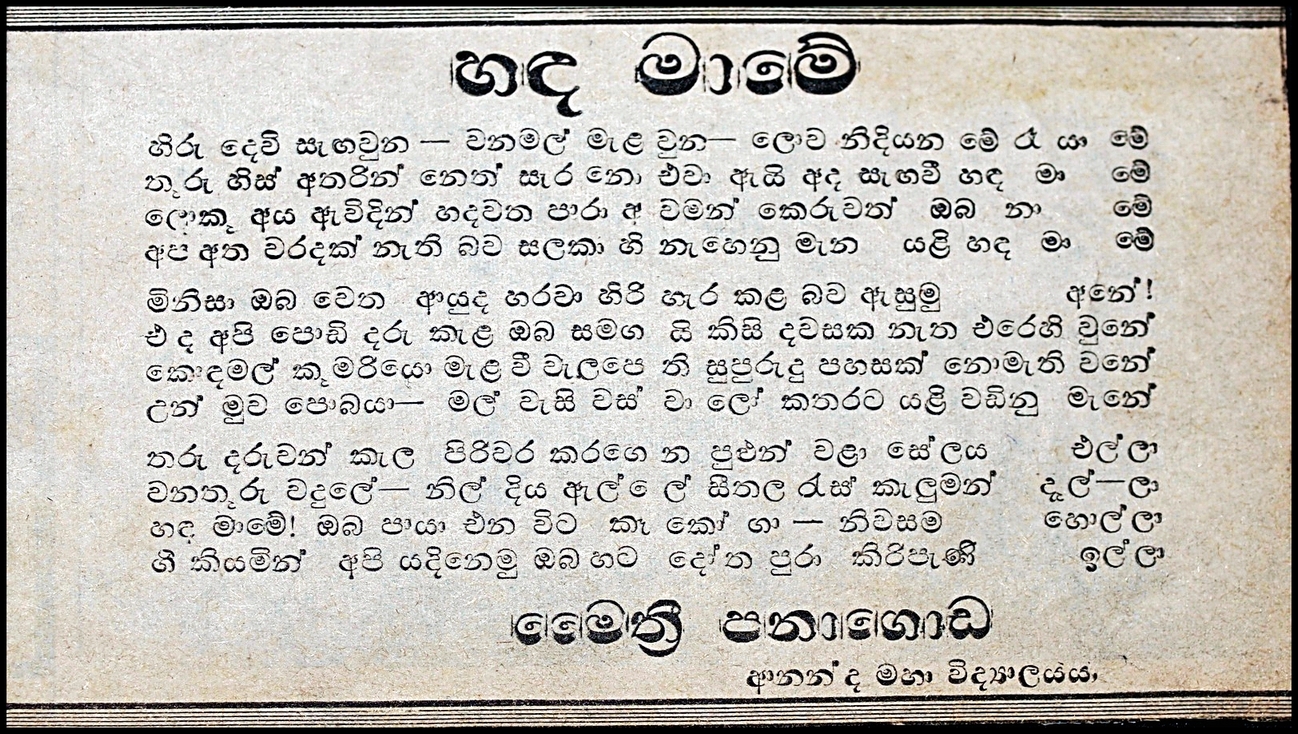 හඳ මාමේ
හිරු දෙවි සැඟවුන — වනමල් මැළ වුන— ලොව නිදියන මේ රෑ යා මේ
තූරු හිස් අතරින් නෙත් සැර නො එවා ඇයි අද සැඟවී හඳ මා මේ
ලොකු අය ඇවිදින් හදවත පාරා අ වමන් කෙරුවත් ඔබ නා මේ
අප අත වරදක් නැති බව සලකා හි නැහෙනු මැන යළි හඳ මා මේ
මිනිසා ඔබ වෙත ආයුද හරවා හිරි හැර කළ බව ඇසුමු අනේ!
එ ද අපි පොඩි දරු කැළ ඔබ සමග යි කිසි දවසක නැත එරෙහි වුනේ
කොඳමල් කුමරියො මැළ වී වැලපෙ ති සුපුරුදු පහසක් නොමැති වනේ
උන් මුව පොබයා— මල් වැසි වස් වා ලෝ කතරට යළි වඩිනු මැනේ
තරු දරුවන් කැල පිරිවර කරගෙ න පුළුන් වළා සේලය එල්ලා
වනතුරු වදුලේ— නිල් දිය ඇල් ලේ සීතල රැස් කැලුමන් දැල්—ලා
හඳ මාමේ! ඔබ පායා එන විට කෑ කෝ ගා — නිවසම හොල්ලා
ගී කියමින් අපි යදිනෙමු ඔබ හට දෝත පුරා කිරිපැණි ඉල්ලා
මෛත්‍රී පනාගොඩ
ආනන්ද මහා විද්‍යාලයය,